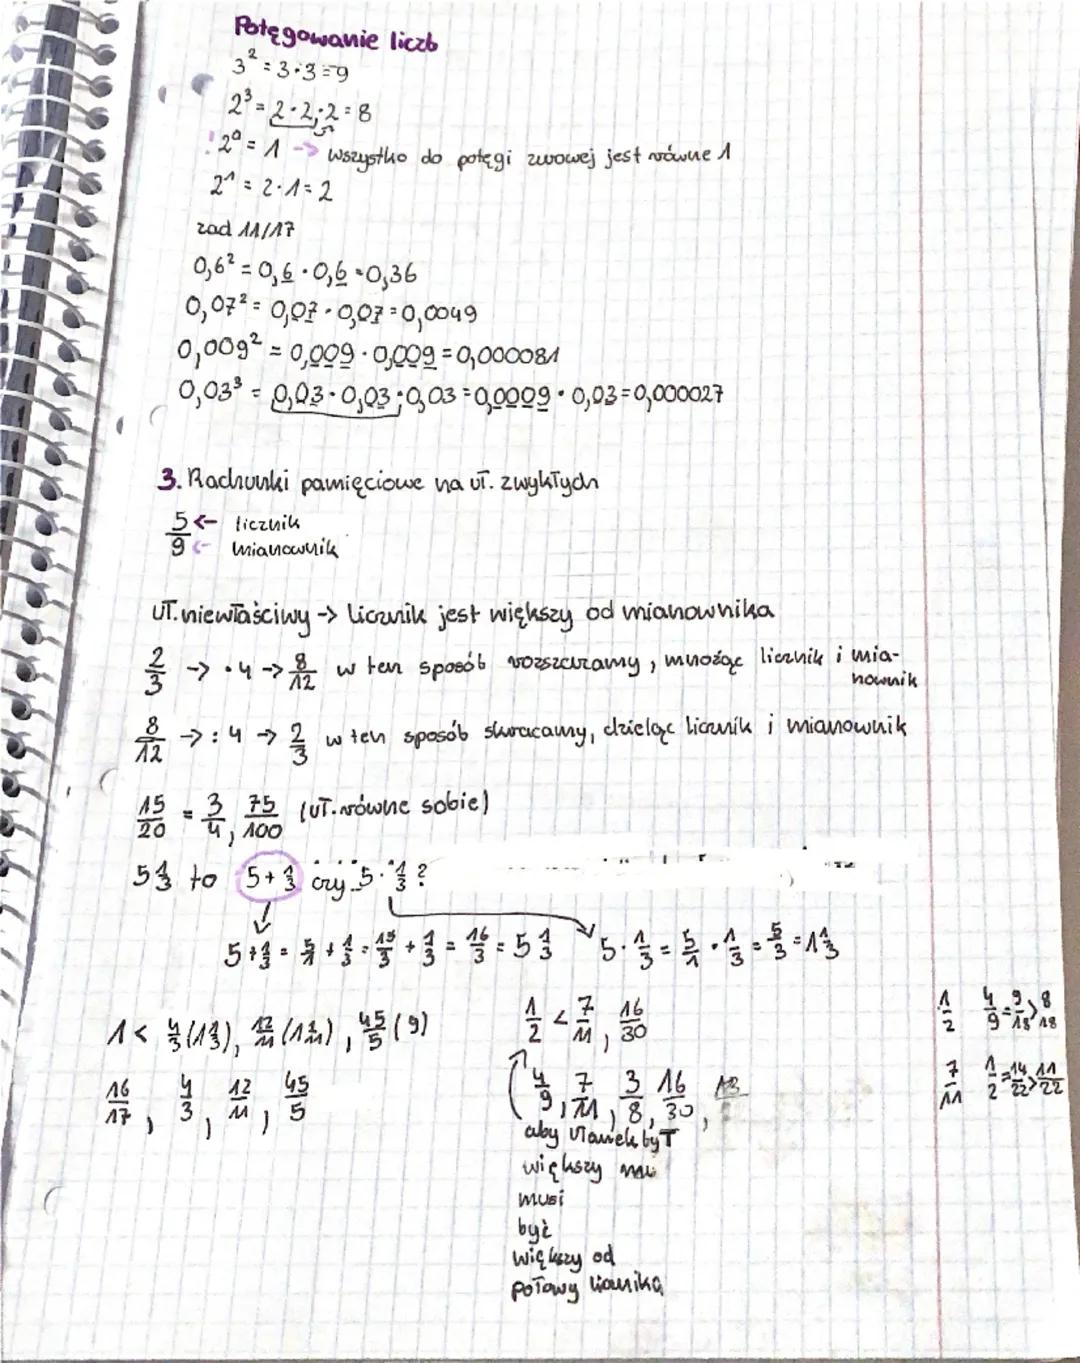 Potęgowanie liczb
3² = 3·3=9
2³ = 2·2·2=8
! 2⁰ = 1 -> wszystko do potęgi zerowej jest równe 1
2¹ = 2·1=2
zad 11/17
0,6² = 0,6 · 0,6 = 0,36
0,07² = 0,07 · 0,07 = 0,0049
0,009² = 0,009 · 0,009 = 0,000081
0,03³ = 0,03 · 0,03 · 0,03 = 0,0009 · 0,03 = 0,000027
3. Rachunki pamięciowe na uł. zwykłych
5/9 <- licznik
<- mianownik
uł. niewłaściwy -> licznik jest większy od mianownika
2/3 -> ·4 -> 8/12 w ten sposób rozszerzamy, mnożąc licznik i mia-
nownik
8/12 -> :4 -> 2/3 w ten sposób skracamy, dzieląc licznik i mianownik
15/20 = 3/4, 75/100 (uł. równe sobie)
5 1/3 to 5+1/3 czy 5·1/3?
5+1/3 = 5/1 + 1/3 = 15/3 + 1/3 = 16/3 = 5 1/3 5·1/3 = 5/1 · 1/3 = 5/3 = 1 1/3
1 < 4/3 (1 1/3), 12/11 (1 1/11), 45/5 (9)
16/17, 4/3, 12/11, 45/5
1/2 < 7/11, 16/30
4/9, 7/11, 3/8, 16/30,
aby ułamek był
większy
musi
być
większy od
połowy licznika
1/2 4/9 = 9/18 > 8/18
7/11 1/2 = 14/22 > 11/22